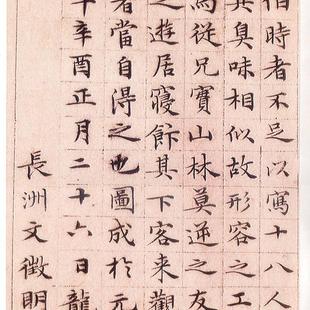 伯時者不足以寫十八人
其臭味相似故形容之工
為從兄寶山林莫逆之友
之遊居寢飰其下客來觀
者當自得之也圖成於元
年辛酉正月二十六日龍
長洲文徵明